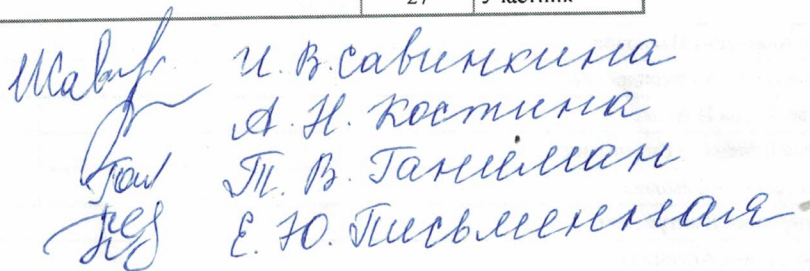 27 Участник
И. В. Савинкина
А. Н. Костина
Т. В.
Е. Ю. Письменная